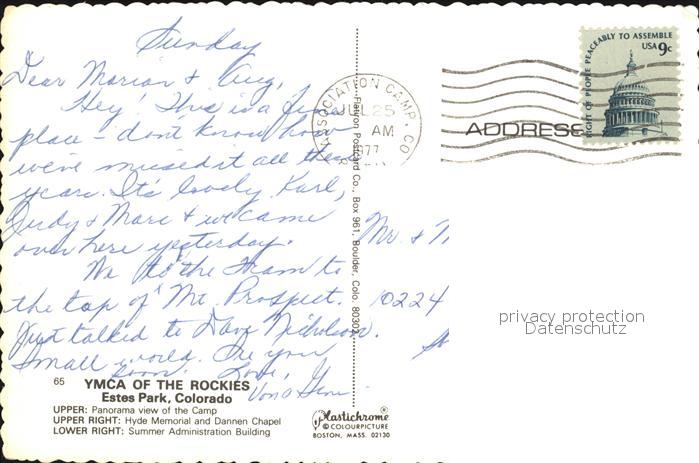 Sunday
Dear Marian & Aug,
Hey! This is a fine
place - don't know how
we've missed it all these
years. It's lovely. Karl,
Judy & Marc & we came
over here yesterday.
We to the Tram to
the top of Mt. Prospect.
Just talked to Dave Nicholson.
Small world. See you
soon. Love,
65 YMCA OF THE ROCKIES
Estes Park, Colorado
UPPER: Panorama view of the Camp
UPPER RIGHT: Hyde Memorial and Dannen Chapel
LOWER RIGHT: Summer Administration Building
Plastichrome ®
© COLOURPICTURE
BOSTON, MASS. 02130
Postcard Co., Box 961, Boulder, Colo. 80302
ASSOCIATION CAMP, CO
JUL 25
AM
1977
ADDRESS
RIGHT OF PEOPLE PEACEABLY TO ASSEMBLE
USA 9c
Mr. &
10224
privacy protection
Datenschutz